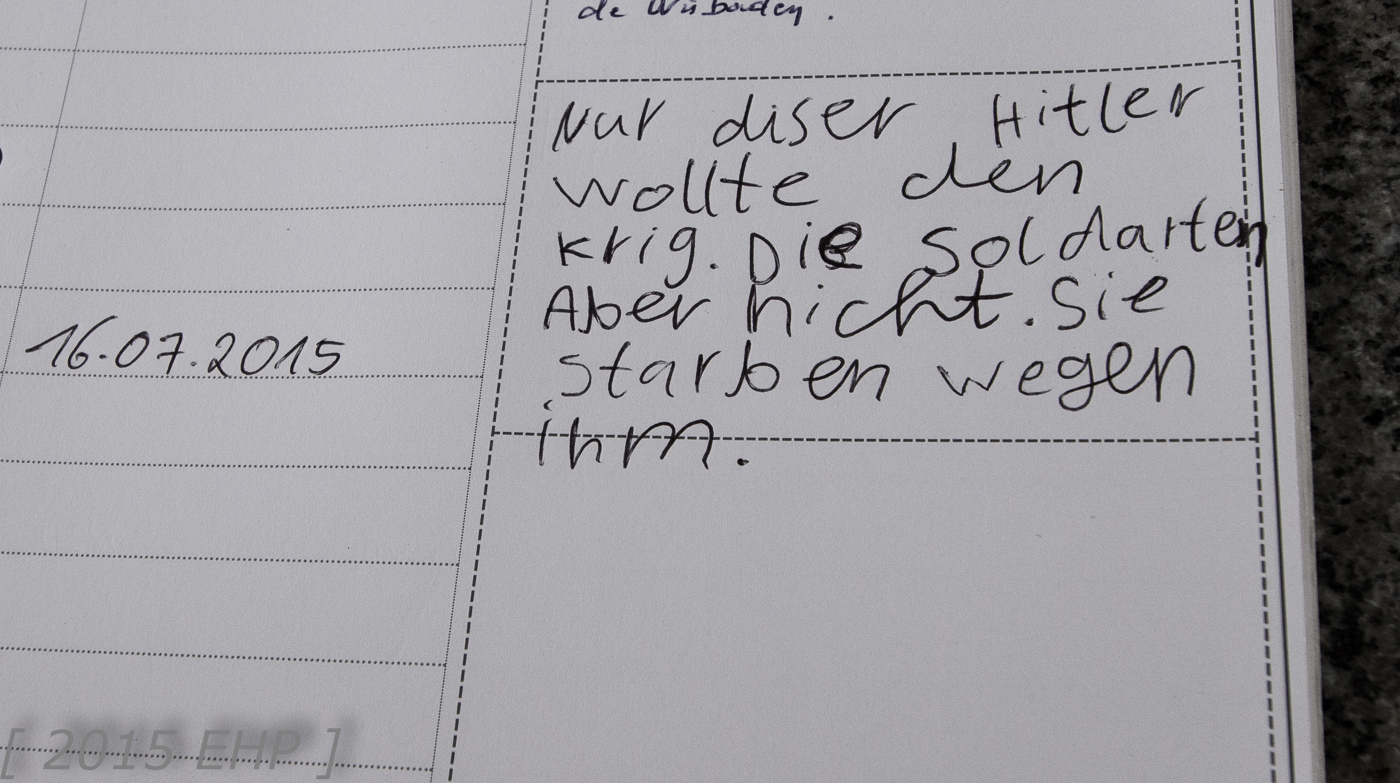 de
Nur diser Hitler
wollte den
krig. Die Soldarten
Aber nicht. Sie
starben wegen
ihm.
16.07.2015
[ 2015 EHP ]